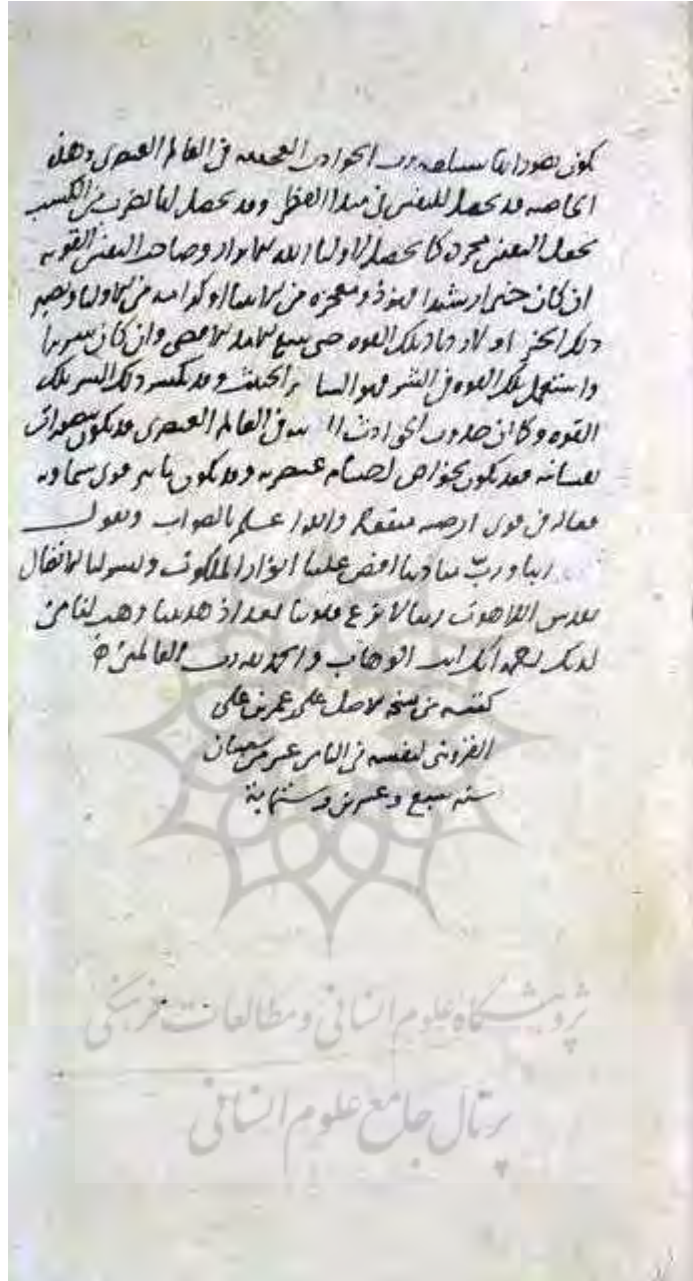 يكون تصوراتها سببا لحدوث الحوادث العجيبة في العالم العنصري وهذه
الخاصة قد تحصل للنفس في مبدأ الفطرة وقد تحصل لها بضرب من الكسب
يجعل النفس مجردة كما يحصل لأولياء الله الأبرار وصاحب النفس القوية
ان كان خيرا رشيدا فهو ذو معجزة من الأنبياء او كرامة من الأولياء ويصير
ذلك الخير ازدياد تلك القوة حتى يبلغ الأمد الأقصى وان كان شريرا
واستعمل تلك القوة في الشر فهو الساحر الخبيث وقد يكسر ذلك الشر تلك
القوة وكما ان حدوث الحوادث في العالم العنصري قد يكون بتصورات
نفسانية فقد يكون بخواص اجسام عنصرية وقد يكون بتأثير قوى سماوية
فعالة في قوى ارضية منفعلة والله اعلم بالصواب ونقول
ربنا ورب مبادينا افض علينا انوار الملكوت ويسر لنا الاتصال
بقدس اللاهوت ربنا لا تزغ قلوبنا بعد اذ هديتنا وهب لنا من
لدنك رحمة انك انت الوهاب والحمد لله رب العالمين
كتبه من نسخة الأصل علي بن عمر بن علي
القزويني لنفسه في الثامن عشر من شعبان
سنة سبع وعشرين وستماية
پژوهشگاه علوم انسانی و مطالعات فرهنگی
پرتال جامع علوم انسانی